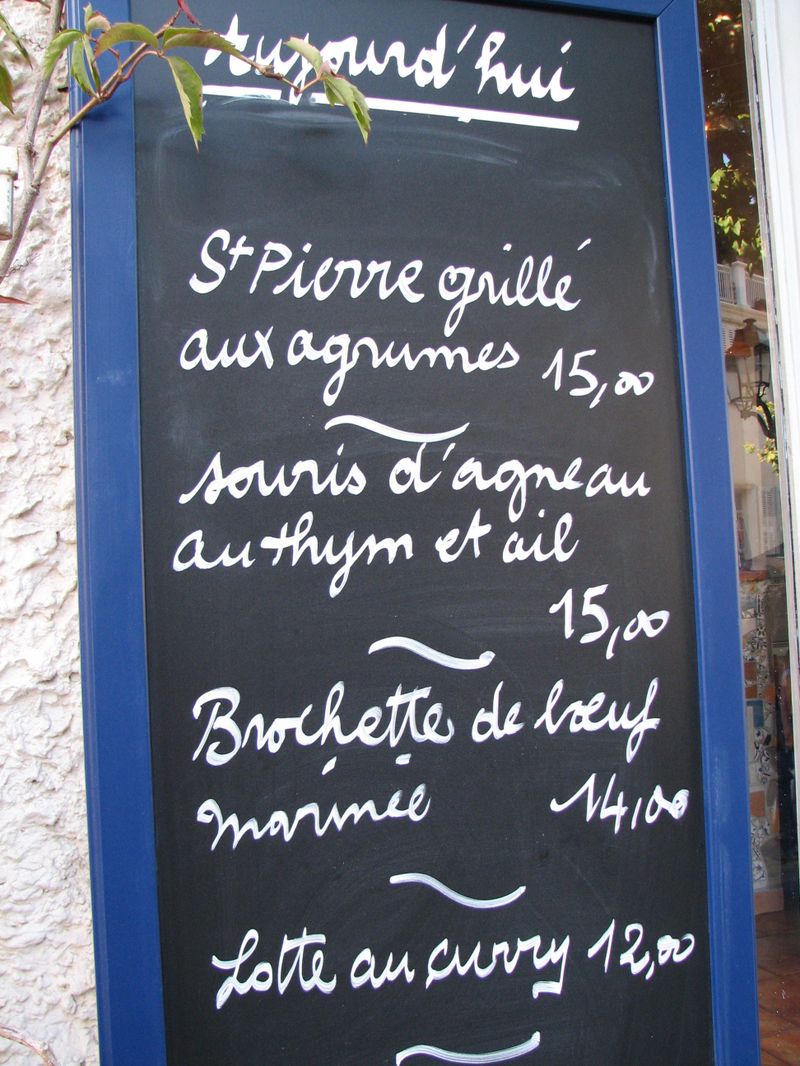 Aujourd'hui
St Pierre grillé
aux agrumes 15,00
souris d'agneau
au thym et ail
15,00
Brochette de bœuf
marinée 14,00
Lotte au curry 12,00